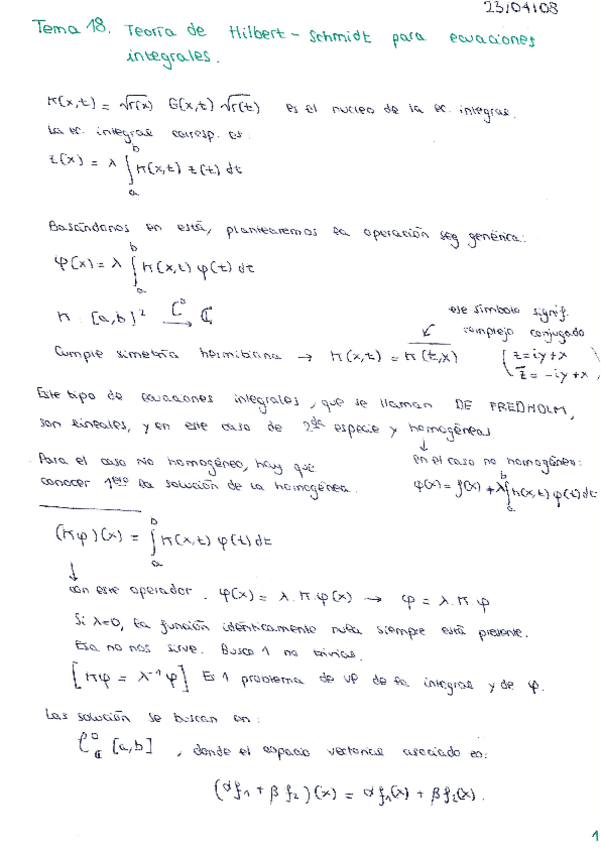 23/04/08
Tema 18. Teoría de Hilbert-Schmidt para ecuaciones
integrales.
K(x,t) = √r(x) G(x,t) √r(t) es el nucleo de la ec. integral.
La ec. integral corresp. es:
z(x) = λ ∫_a^b K(x,t) z(t) dt
Basándonos en esta, plantearemos la operación seg genérica:
φ(x) = λ ∫_a^b K(x,t) φ(t) dt
K : [a,b]² —C⁰→ ℂ
ese símbolo signif.
complejo conjugado
Cumple simetría hermitiana → K(x,t) = \overline{K(t,x)} (z = iy + x
z̄ = -iy + x)
Este tipo de ecuaciones integrales, que se llaman DE FREDHOLM,
son lineales, y en este caso de 2da especie y homogéneas
Para el caso No homogéneo, hay que
conocer 1ero la solución de la homogénea.
en el caso no homogéneo:
φ(x) = f(x) + λ ∫_a^b K(x,t) φ(t) dt
(Kφ)(x) = ∫_a^b K(x,t) φ(t) dt
↓
con este operador. φ(x) = λ.K.φ(x) → φ = λ.K.φ
Si λ=0, la función idénticamente nula siempre está presente.
Esa no nos sirve. Busco 1 no trivial.
[Kφ = λ⁻¹φ] Es 1 problema de VP de la integral y de φ.
Las solución se buscan en:
C⁰_ℂ [a,b] , donde el espacio vectorial asociado es:
(αf₁ + βf₂)(x) = αf₁(x) + βf₂(x).
1